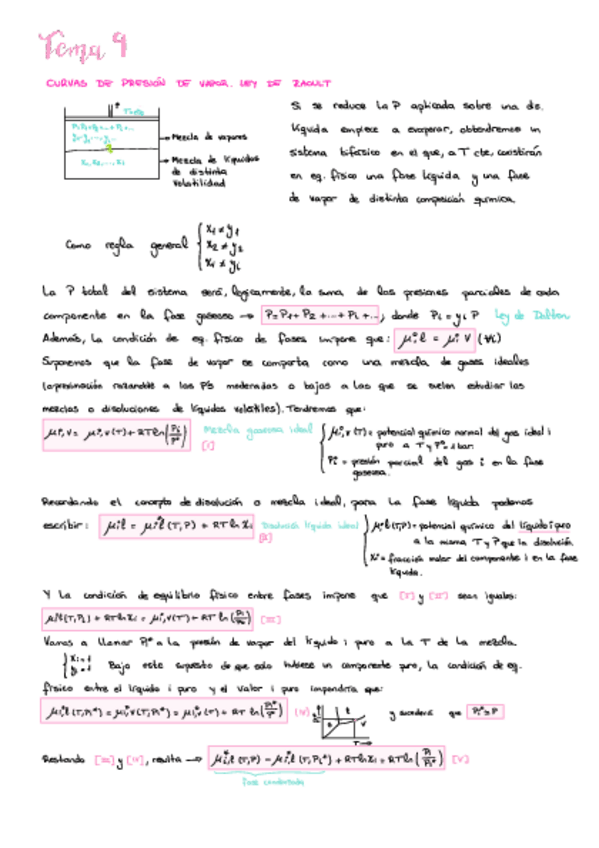 Tema 9
CURVAS DE PRESIÓN DE VAPOR. LEY DE RAOULT
Si se reduce la P aplicada sobre una ds.
líquida empiece a evaporar, obtendremos un
sistema bifásico en el que, a T cte, coexistirán
en eq. físico una fase líquida y una fase
de vapor de distinta composición química.
T=cte
→ Mezcla de vapores
x₁, x₂, ..., xᵢ
→ Mezcla de líquidos
de distinta
volatilidad
Como regla general { x₁ ≠ y₁
x₂ ≠ y₂
xᵢ ≠ yᵢ
La P total del sistema será, lógicamente, la suma de las presiones parciales de cada
componente en la fase gaseosa → P = P₁ + P₂ + ... + Pᵢ + ..., donde Pᵢ = yᵢ P Ley de Dalton
Además, la condición de eq. físico de fases impone que: μᵢ l = μᵢ v (∀i)
Suponemos que la fase de vapor se comporta como una mezcla de gases ideales
(aproximación razonable a las P's moderadas o bajas a las que se suelen estudiar las
mezclas o disoluciones de líquidos volátiles). Tendremos que:
μᵢ,v = μ°ᵢ,v(T) + RT ln(Pᵢ/P°) Mezcla gaseosa ideal [I]
{ μ°ᵢ,v(T) = potencial químico normal del gas ideal i
puro a T y P° = 1 bar.
Pᵢ = presión parcial del gas i en la fase
gaseosa.
Recordando el concepto de disolución o mezcla ideal, para la fase líquida podemos
escribir: μᵢl = μ*ᵢl(T,P) + RT ln xᵢ Disolución líquida ideal [II]
{ μ*ᵢl(T,P) = potencial químico del líquido i puro
a la misma T y P que la disolución.
xᵢ = fracción molar del componente i en la fase
líquida.
Y la condición de equilibrio físico entre fases impone que [I] y [II] sean iguales:
μ*ᵢl(T,P) + RT ln xᵢ = μ°ᵢ,v(T) + RT ln(Pᵢ/P°) [III]
Vamos a llamar Pᵢ* a la presión de vapor del líquido i puro a la T de la mezcla.
{ xᵢ = 1
yᵢ = 1 Bajo este supuesto de que solo hubiese un componente puro, la condición de eq.
físico entre el líquido i puro y el vapor i puro impondría que:
μ*ᵢ,l(T,Pᵢ*) = μ*ᵢ,v(T,Pᵢ*) = μ°ᵢ,v(T) + RT ln(Pᵢ*/P°) [IV] y sucederá que Pᵢ* = P
Restando [III] y [IV], resulta → μ*ᵢ,l(T,P) − μ*ᵢ,l(T,Pᵢ*) + RT ln xᵢ = RT ln(Pᵢ/Pᵢ*) [V]
Fase condensada